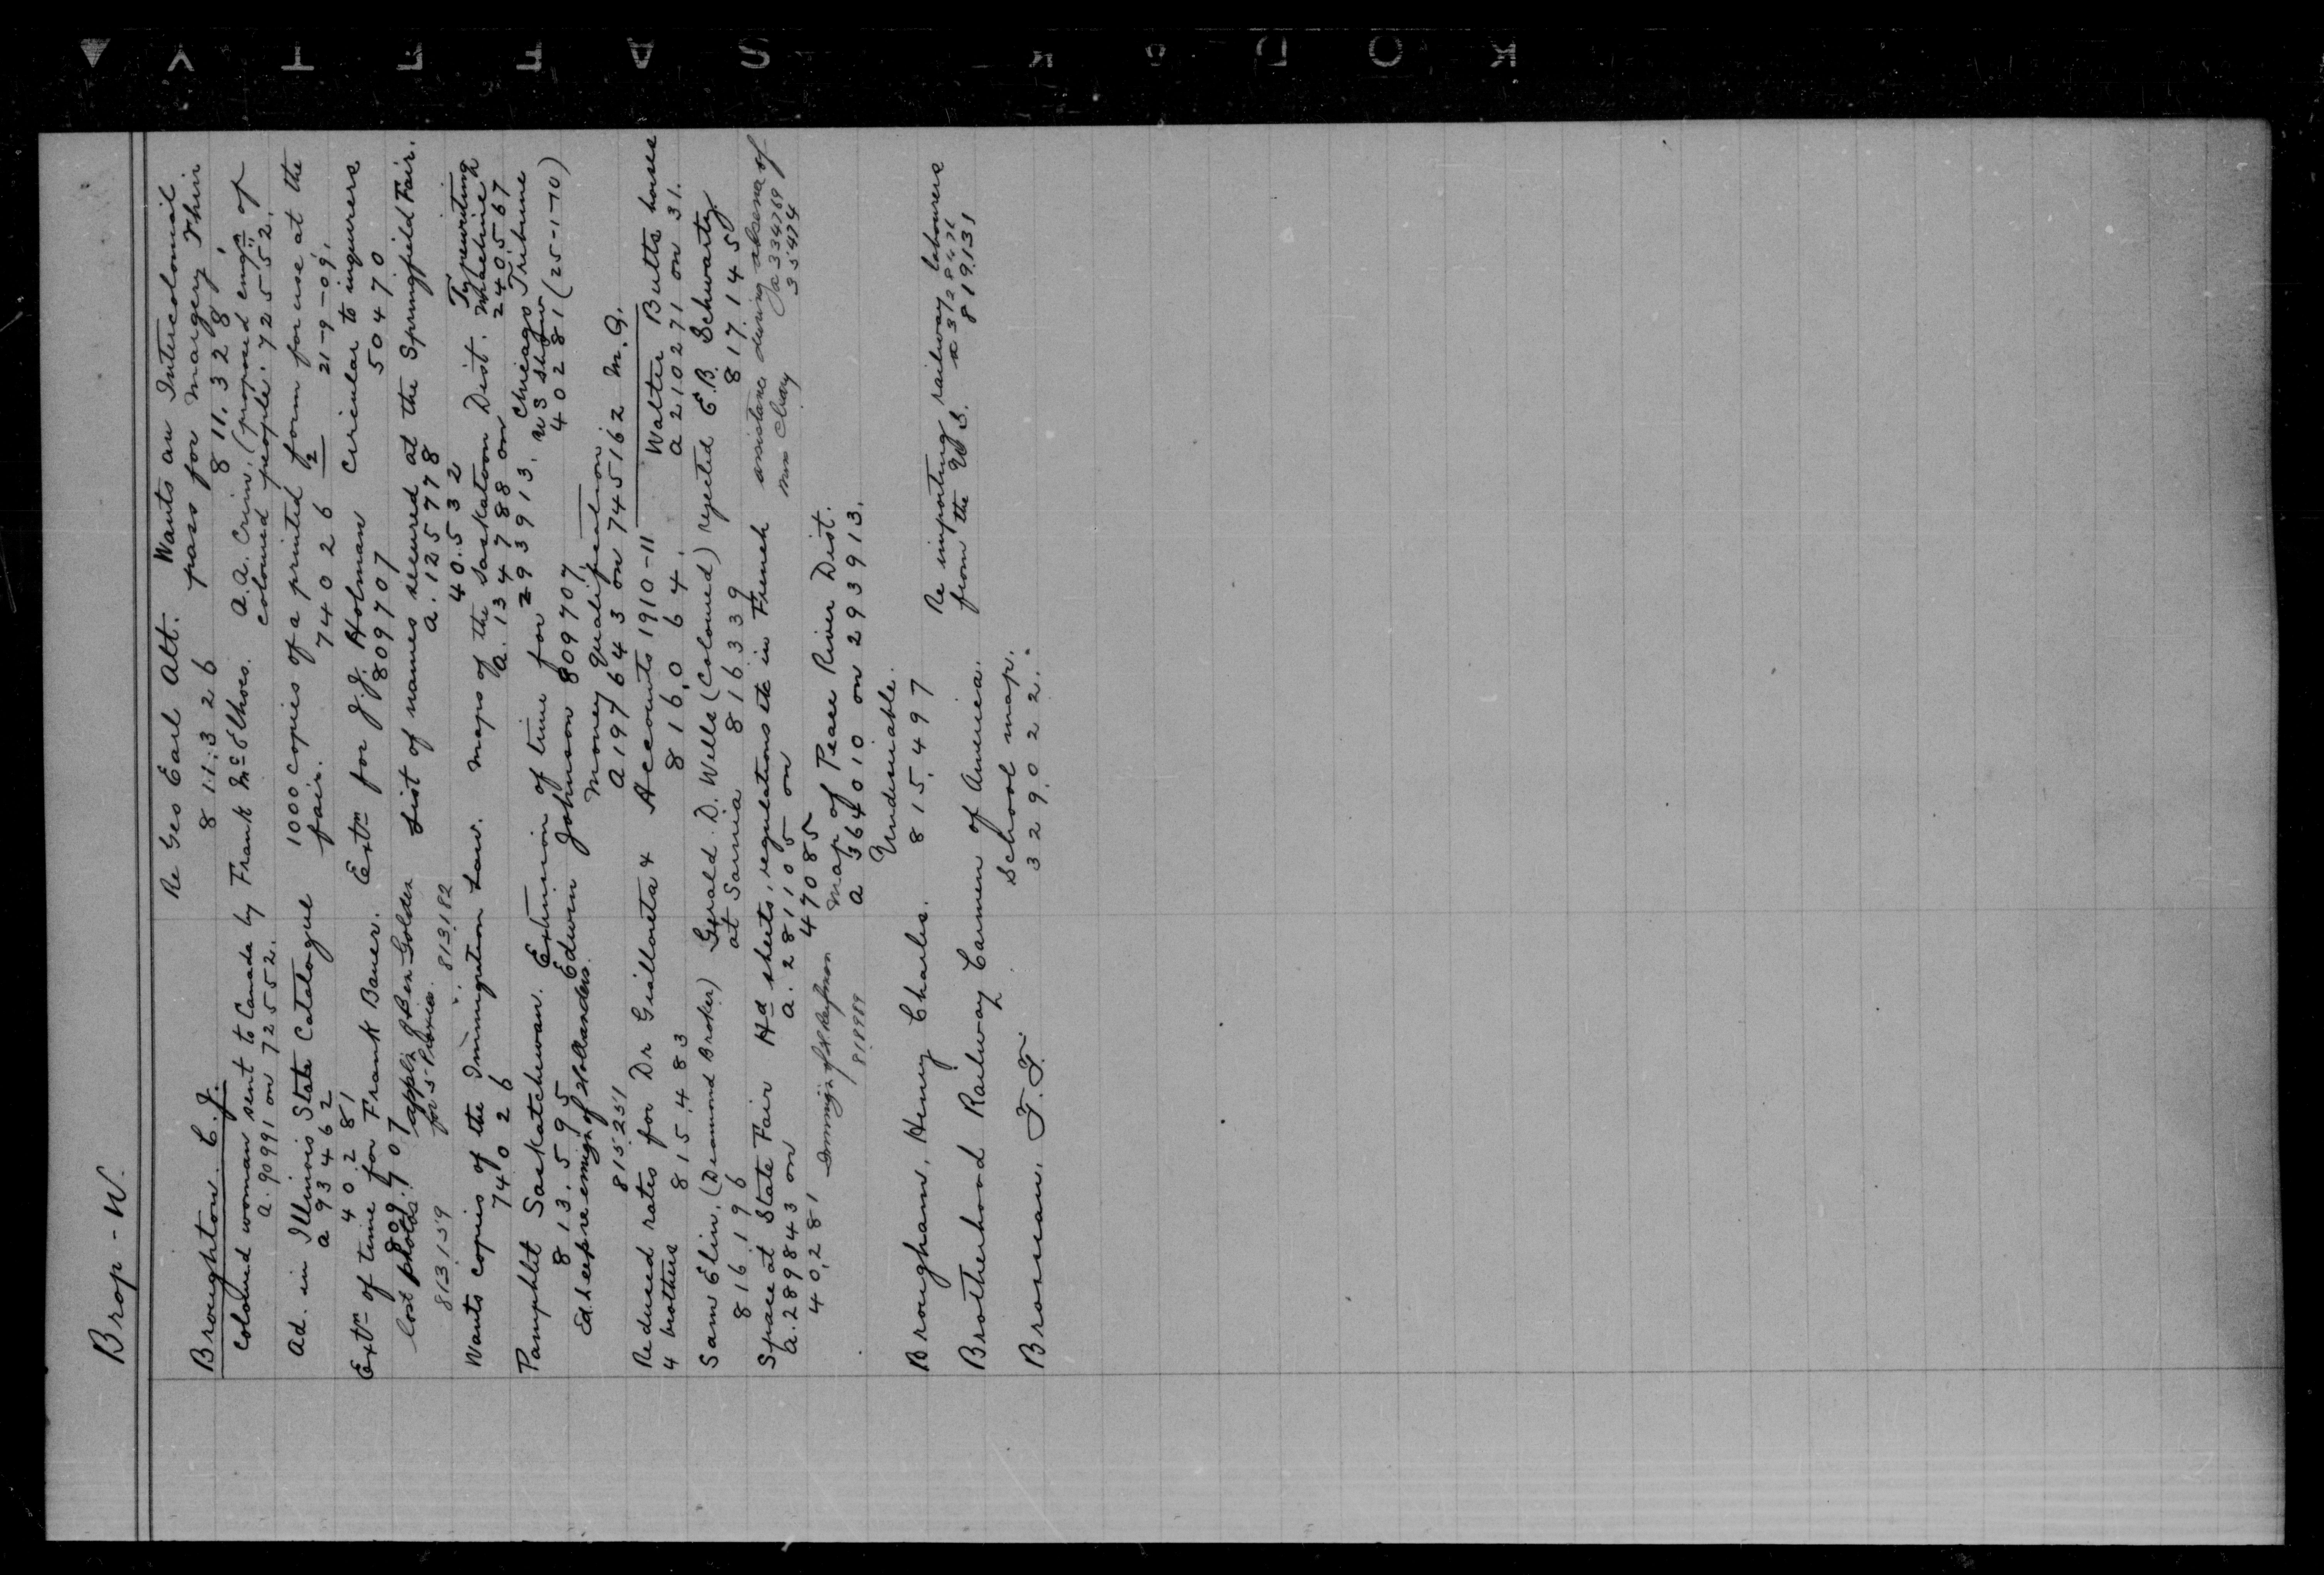 Brop - W.
Broughton. C. J. Re Geo Earl Alt. Wants an Intercolonial
811.326 pass for Margery Thin
811.328.
Coloured woman sent to Canada by Frank McElhoes. A.A. Crim, (proposed emign of
a. 90991 on 72552. coloured people. 72552.
Ad. in Illinois State Catalogue 1000 copies of a printed form for use at the
a 93462 fair. 74026 21-9-09.
40281
Extn of time for Frank Bauer. Extn for J.J. Holman Circular to inquirers
809707 809707 50470
lost photos. applin of Ben Golden List of names secured at the Springfield Fair.
for 5 a. 125778
813.159 813.182 40.532
Wants copies of the Immigration Law. Maps of the Saskatoon Dist. Typewriting
74026 a. 134788 on Machine
293913. 240.5.67
Pamphlet Saskatchewan. Extension of time for Chicago Tribune
813.595 Edwin Johnson 809707 40281 (25-1-10)
re emign of Hollanders. Money qualification
815.251 a 197643 on 745162 M.G.
Reduced rates for Dr Accounts 1910-11 Walter Butts horses
4 brothers 815.483 816.064. a 210271 on 31.
Sam Elin, (Diamond Broker) Gerald. D. Wells (Coloured) rejected E.B. Schwartz
816.196 at Sarnia 816339 817.145
Space at State Fair Hd sheets, regulations etc in French assistance during absence of
a. 289843 on a. 281105 on a 334769
40,281 47085 35474
818989 Map of Peace River Dist.
a 364010 on 293913.
Undesirable.
Brougham, Henry Charles. 815.497
Brotherhood Railway Carmen of America. Re importing railway labourers
from the U.S. 819131
Brosnan, T.F. School map.
329022.
KODAK SAFETY